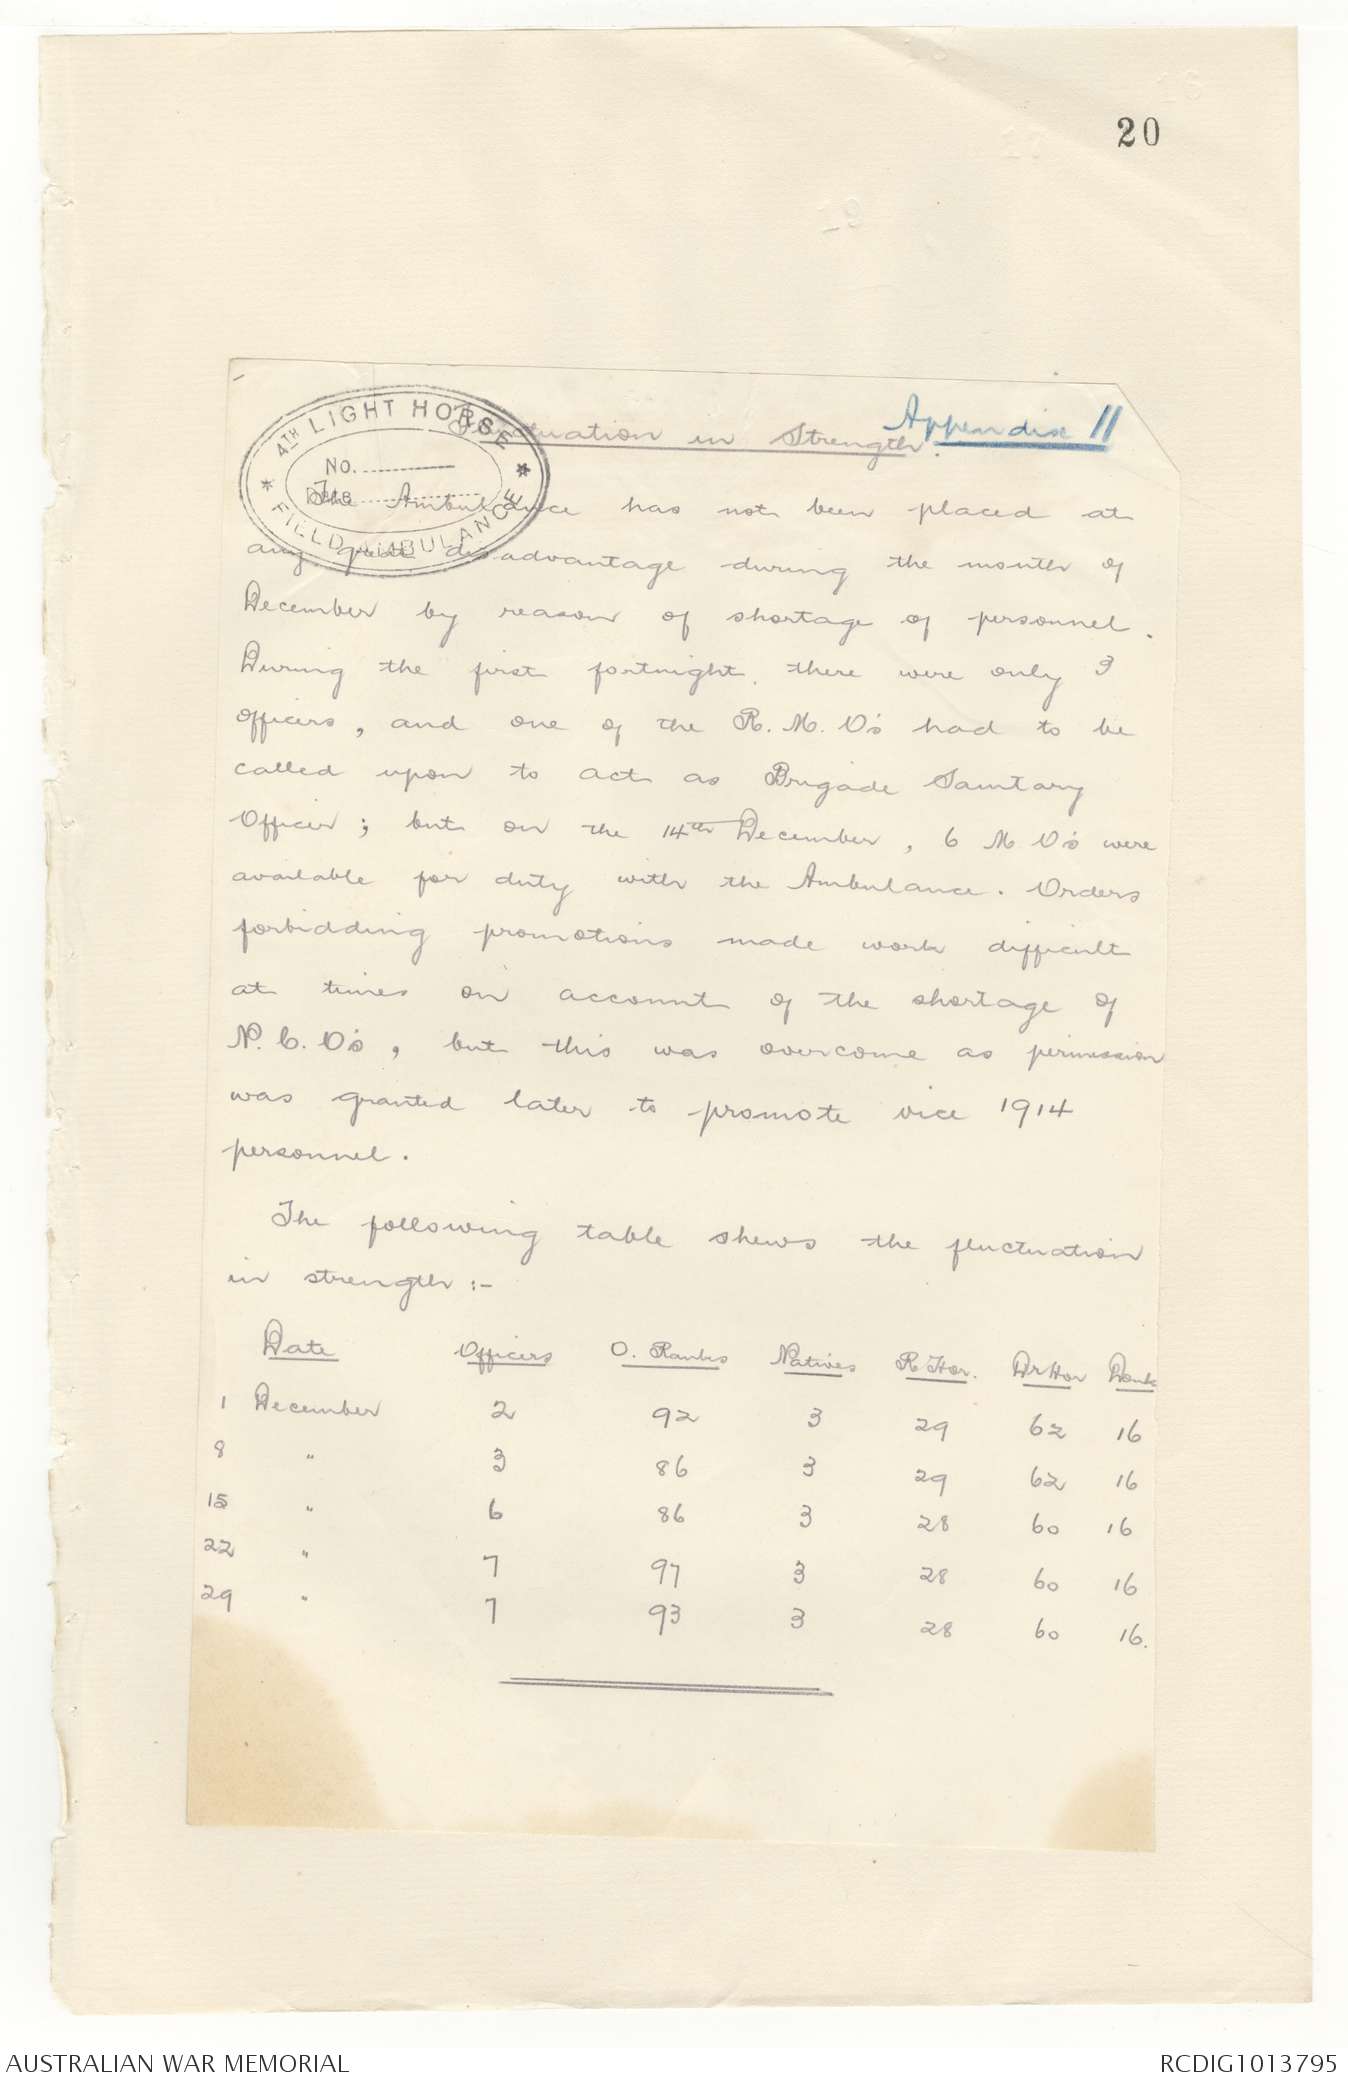 20
Appendix 11
4TH LIGHT HORSE
FIELD AMBULANCE
NO.
DATE
Fluctuation in Strength.
The Ambulance has not been placed at
any great disadvantage during the month of
December by reason of shortage of personnel.
During the first fortnight there were only 3
officers, and one of the R.M.O's had to be
called upon to act as Brigade Sanitary
Officer; but on the 14th December, 6 M O's were
available for duty with the Ambulance. Orders
forbidding promotions made work difficult
at times on account of the shortage of
N.C.O's, but this was overcome as permission
was granted later to promote vice 1914
personnel.
The following table shews the fluctuation
in strength :-
Date Officers O. Ranks Natives R Hor. Dr Hor Donk
1 December 2 92 3 29 62 16
8 " 3 86 3 29 62 16
15 " 6 86 3 28 60 16
22 " 7 97 3 28 60 16
29 " 7 93 3 28 60 16.
AUSTRALIAN WAR MEMORIAL
RCDIG1013795